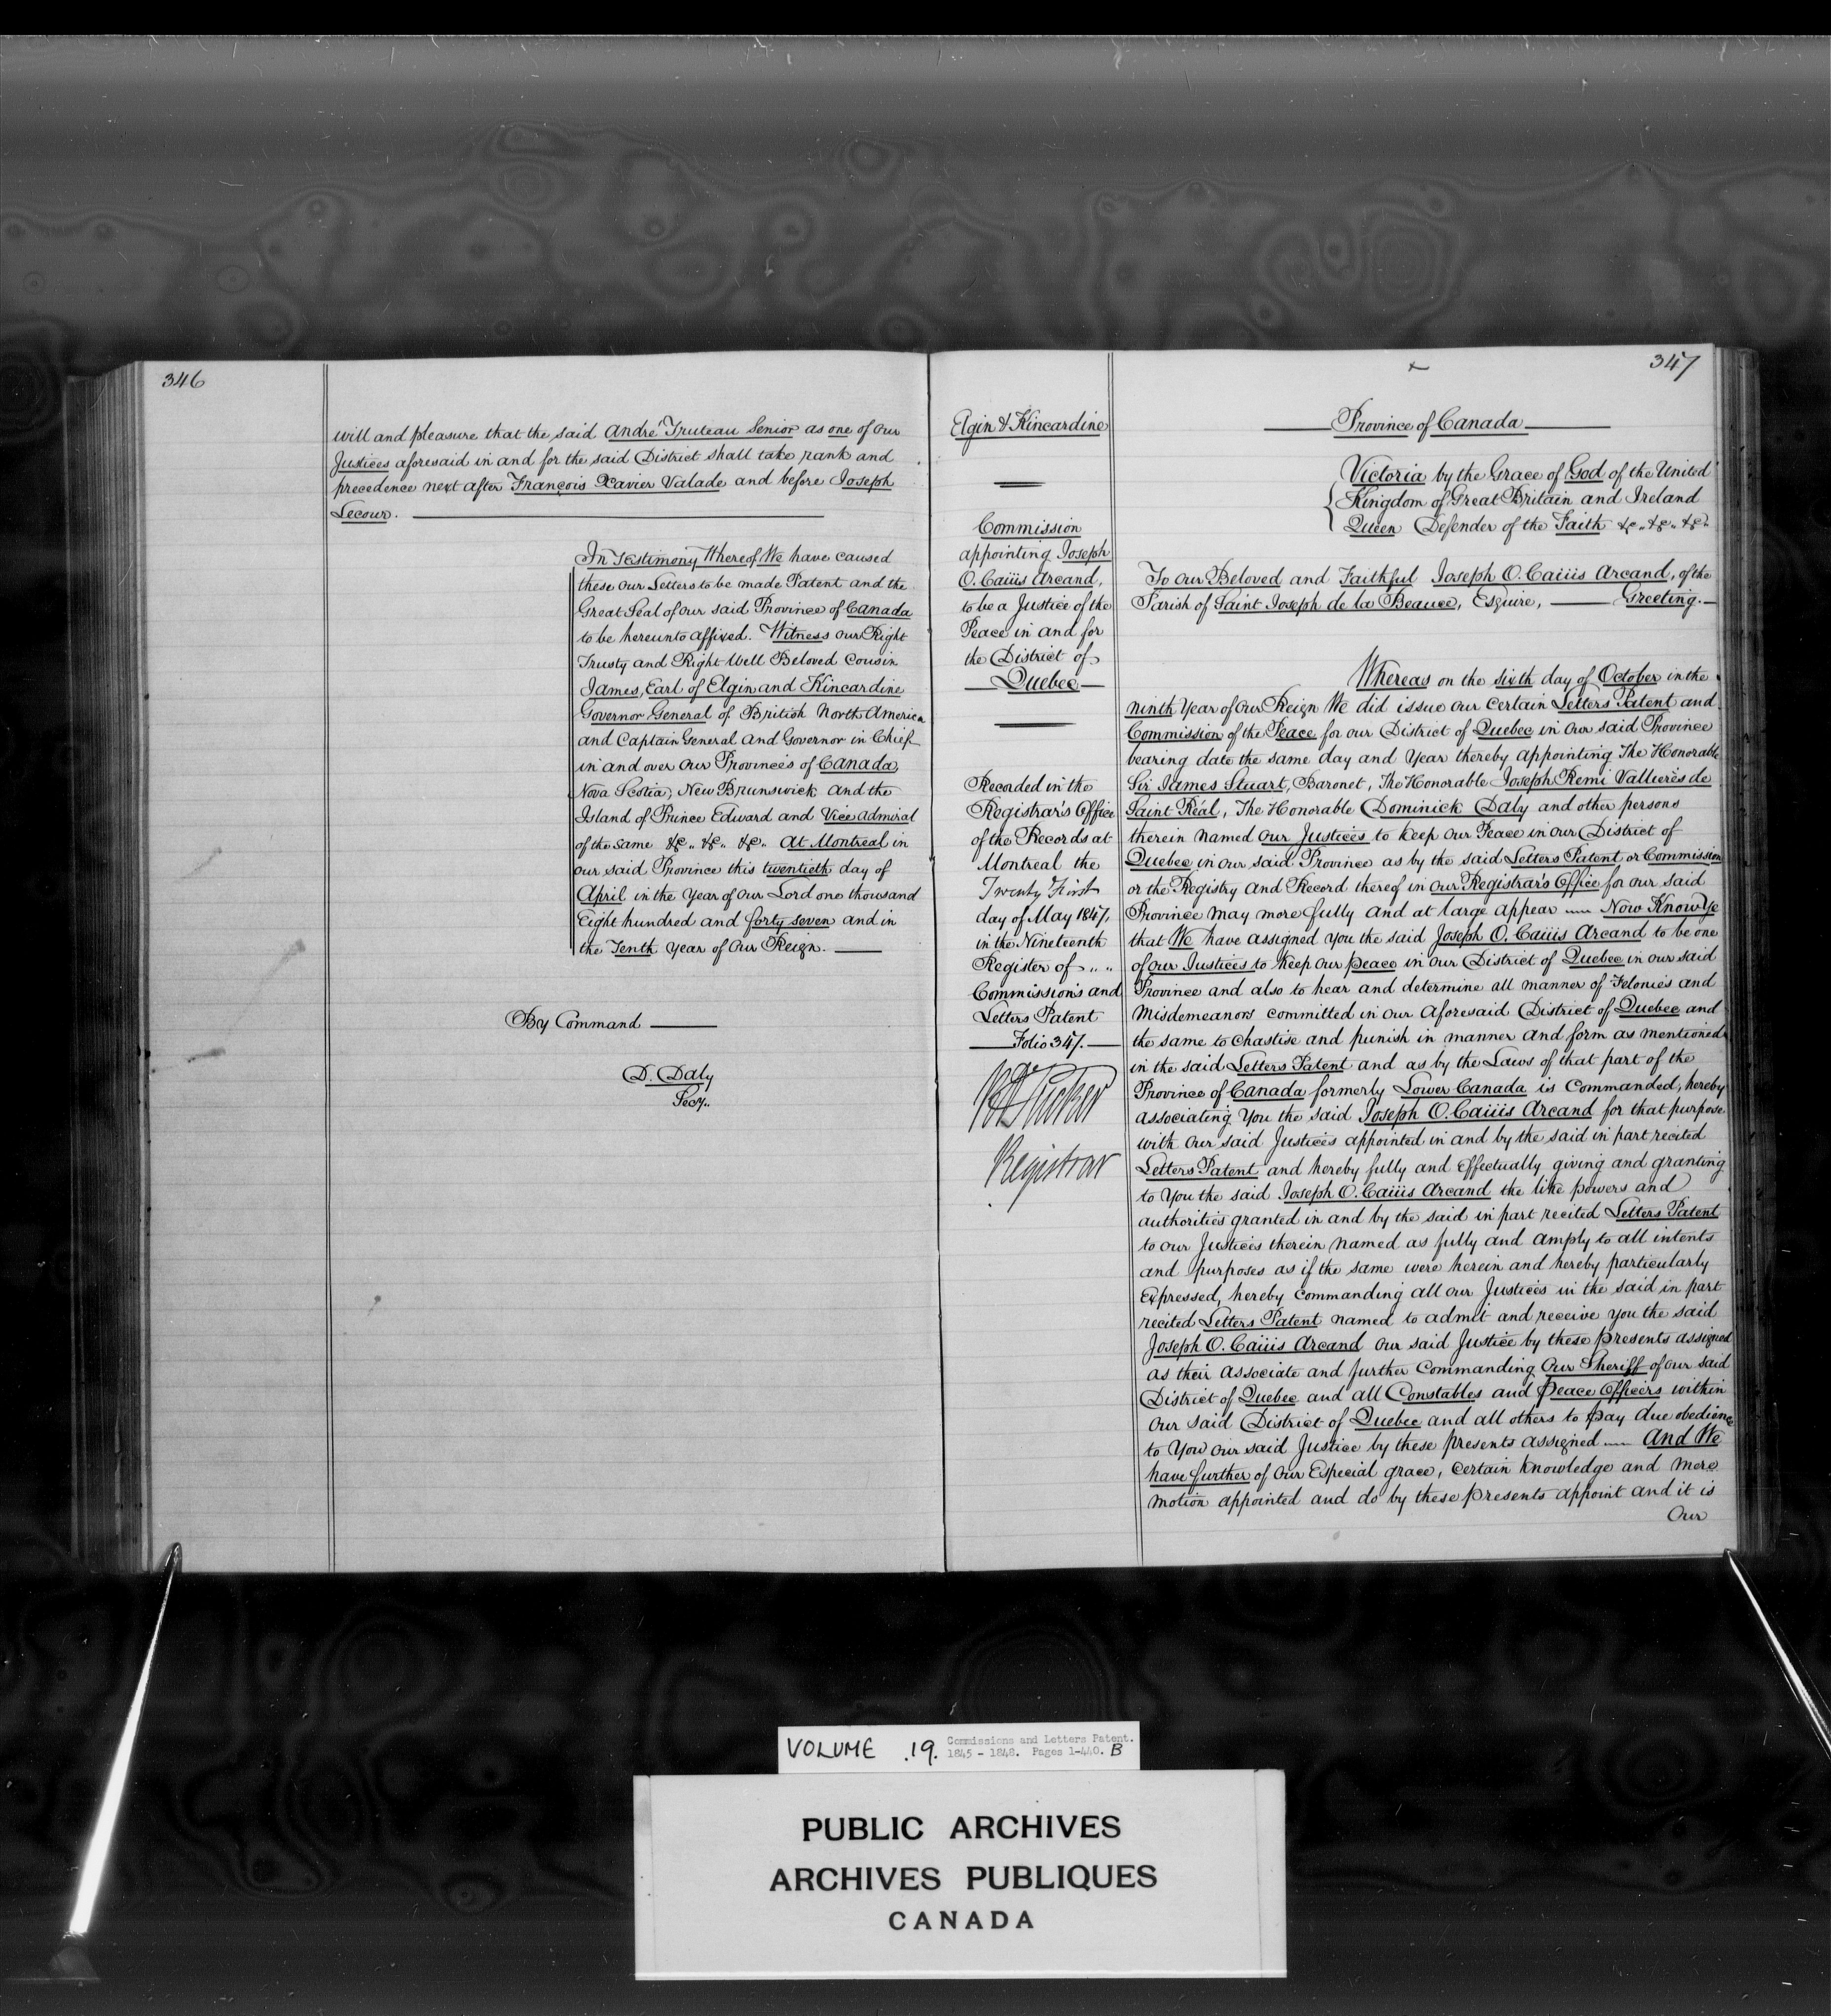 346
will and pleasure that the said André Truteau Senior as one of our
Justices aforesaid in and for the said District shall take rank and
precedence next after François Xavier Valade and before Joseph
Lecour.
In Testimony Whereof We have caused
these our Letters to be made Patent and the
Great Seal of our said Province of Canada
to be hereunto affixed. Witness our Right
Trusty and Right Well Beloved Cousin
James, Earl of Elgin and Kincardine
Governor General of British North America
and Captain General and Governor in Chief
in and over our Provinces of Canada,
Nova Scotia, New Brunswick and the
Island of Prince Edward and Vice Admiral
of the same &c., &c., &c., At Montreal in
our said Province this twentieth day of
April in the Year of our Lord one thousand
Eight hundred and forty seven and in
the Tenth Year of Our Reign.
By Command
D. Daly
Secy.
347
Elgin & Kincardine
Commission
appointing Joseph
O. Caiüs Arcand,
to be a Justice of the
Peace in and for
the District of
Quebec
Recorded in the
Registrar's Office
of the Records at
Montreal the
Twenty First
day of May 1847,
in the Nineteenth
Register of
Commissions and
Letters Patent
Folio 347.
RA Tucker
Registrar
Province of Canada
Victoria by the Grace of God of the United
Kingdom of Great Britain and Ireland
Queen Defender of the Faith &c., &c., &c.,
To our Beloved and Faithful Joseph O. Caiüs Arcand, of the
Parish of Saint Joseph de la Beauce, Esquire, Greeting.
Whereas on the sixth day of October in the
ninth Year of Our Reign We did issue our certain Letters Patent and
Commission of the Peace for our District of Quebec in our said Province
bearing date the same day and Year thereby appointing The Honorable
Sir James Stuart, Baronet, The Honorable Joseph Remi Vallieres de
Saint Réal, The Honorable Dominick Daly and other persons
therein named our Justices to keep our Peace in our District of
Quebec in our said Province as by the said Letters Patent or Commission
or the Registry and Record thereof in our Registrar's Office for our said
Province may more fully and at large appear Now Know Ye
that We have assigned you the said Joseph O. Caiüs Arcand to be one
of our Justices to keep our peace in our District of Quebec in our said
Province and also to hear and determine all manner of Felonies and
Misdemeanors committed in our aforesaid District of Quebec and
the same to chastise and punish in manner and form as mentioned
in the said Letters Patent and as by the Laws of that part of the
Province of Canada formerly Lower Canada is Commanded, hereby
associating You the said Joseph O. Caiüs Arcand for that purpose
with our said Justices appointed in and by the said in part recited
Letters Patent and hereby fully and effectually giving and granting
to You the said Joseph O. Caiüs Arcand the like powers and
authorities granted in and by the said in part recited Letters Patent
to our Justices therein named as fully and amply to all intents
and purposes as if the same were herein and hereby particularly
Expressed, hereby commanding all our Justices in the said in part
recited Letters Patent named to admit and receive you the said
Joseph O. Caiüs Arcand our said Justice by these presents assigned
as their associate and further Commanding Our Sheriff of our said
District of Quebec and all Constables and Peace Officers within
our said District of Quebec and all others to pay due obedience
to You our said Justice by these presents assigned And We
have further of our Especial grace, certain knowledge and mere
motion appointed and do by these presents appoint and it is
Our
VOLUME .19. Commissions and Letters Patent.
1845 - 1848. Pages 1-440. B
PUBLIC ARCHIVES
ARCHIVES PUBLIQUES
CANADA